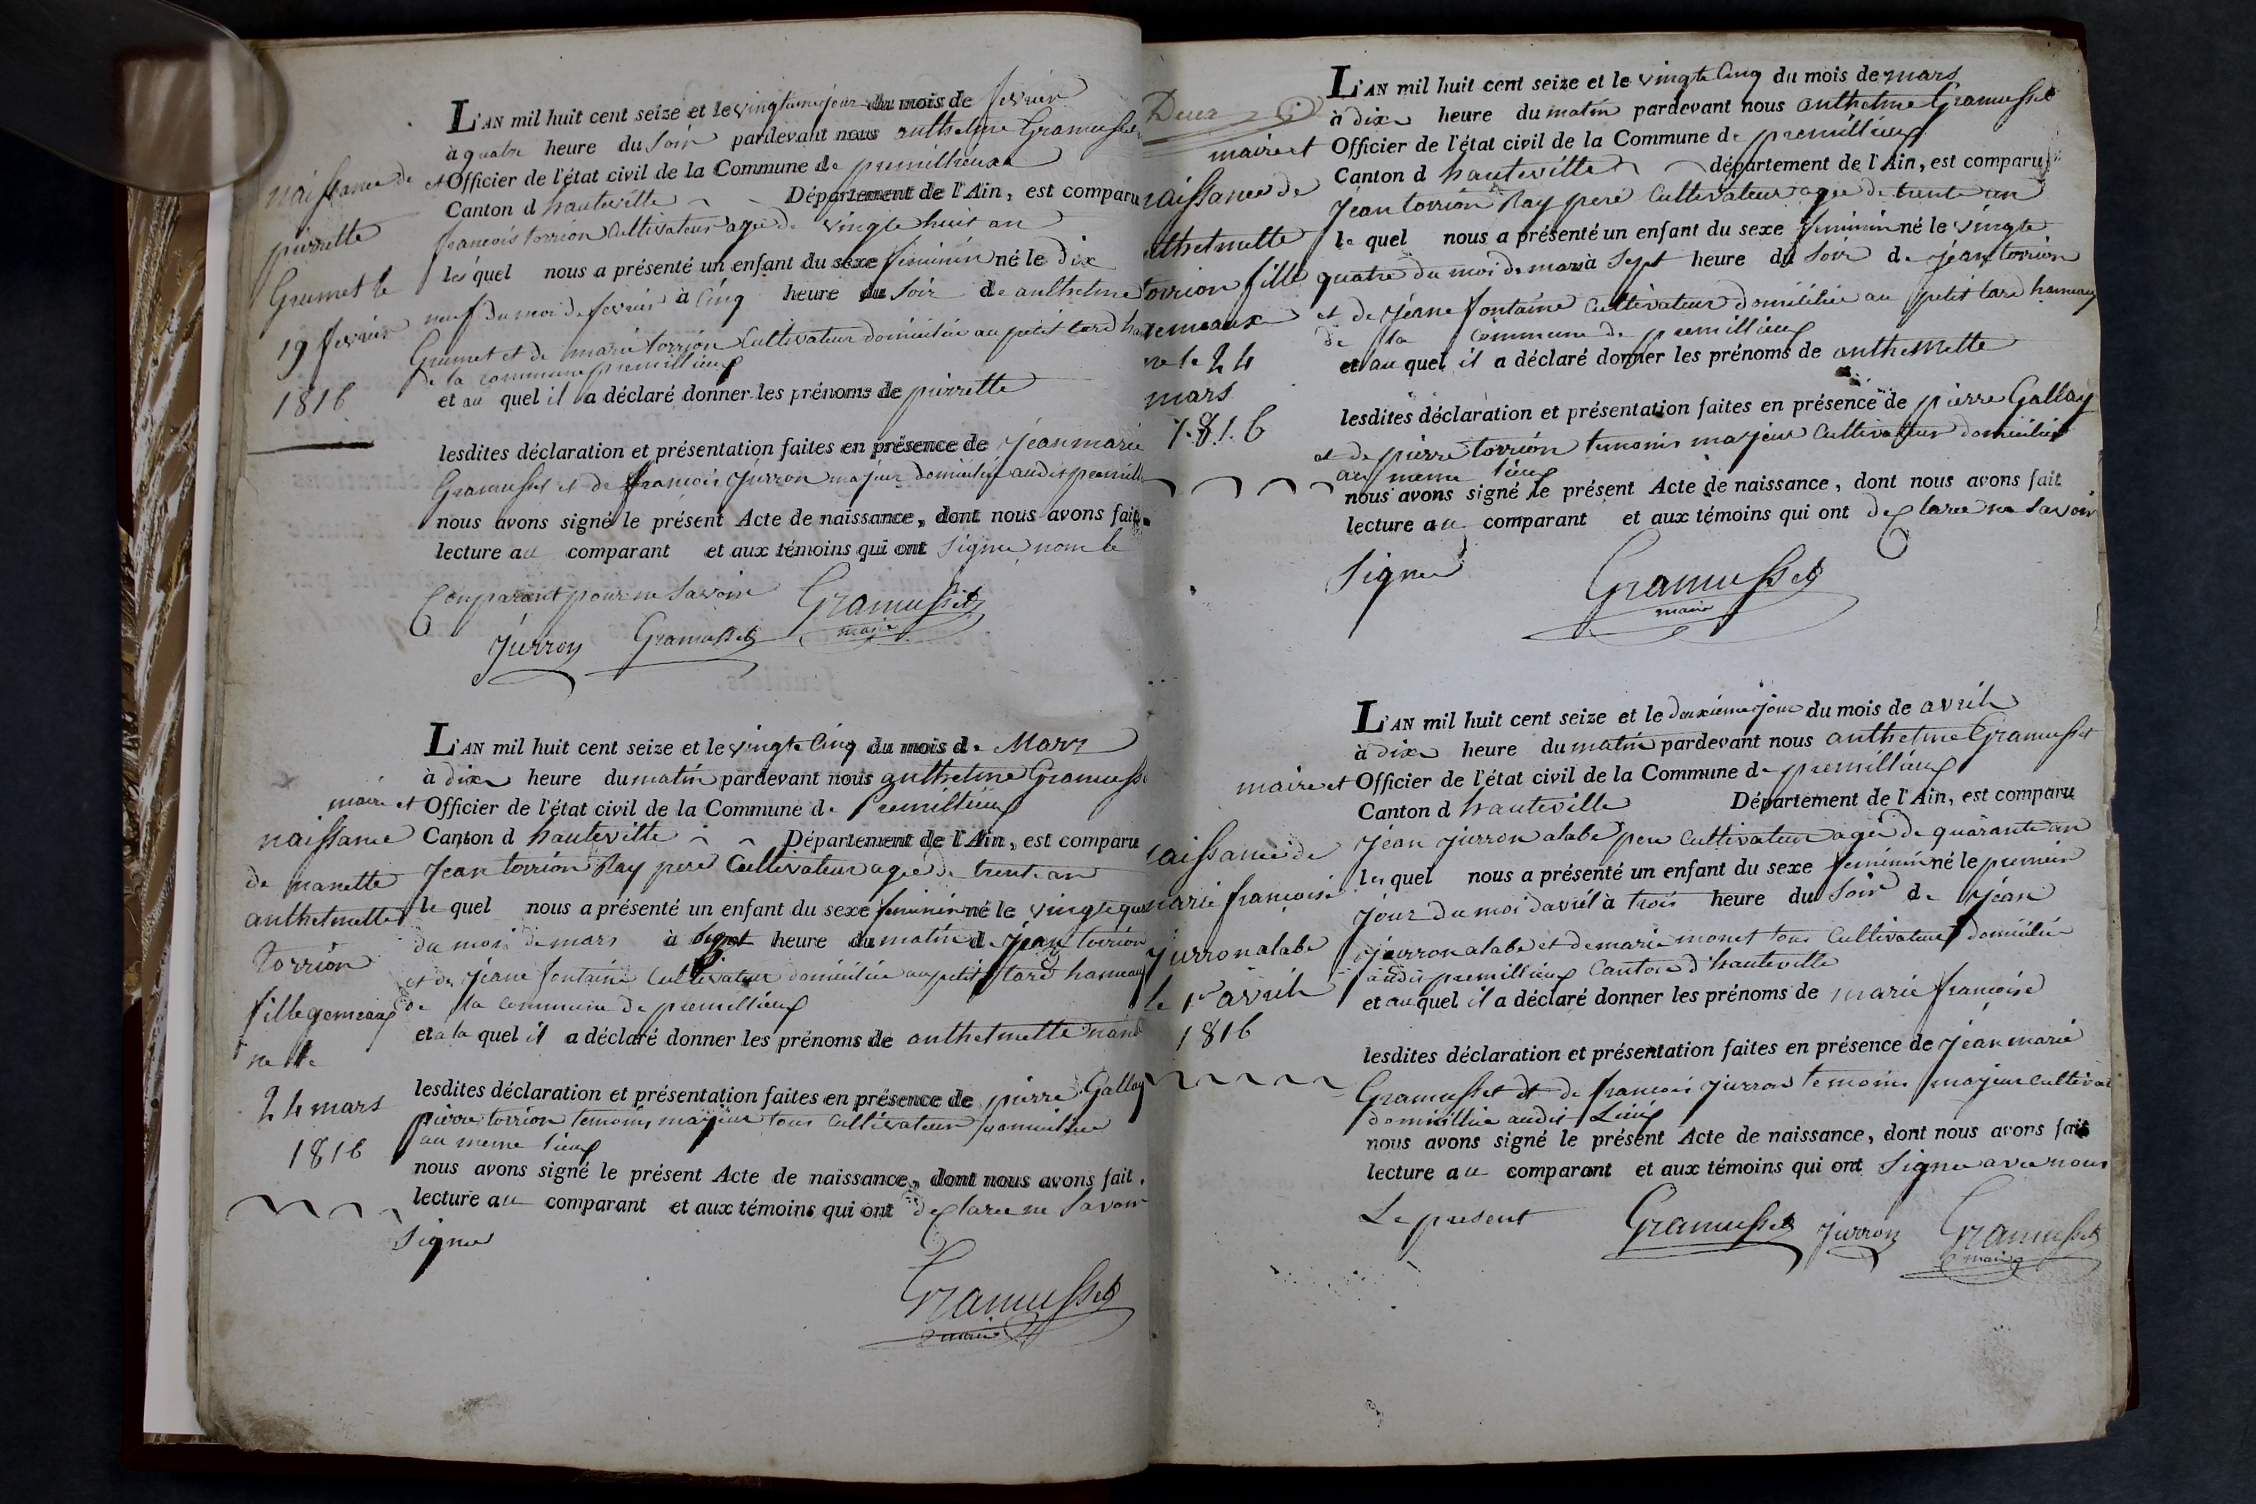 L'AN mil huit cent seize et le vingtieme jour du mois de fevrier
à quatre heure du soir pardevant nous anthelme Gramusset
et Officier de l'état civil de la Commune de premillieux
Canton d hauteville Département de l'Ain, est comparu
francois torrion Cultivateur agé de vingte huit an
le quel nous a présenté un enfant du sexe feminin né le dix
neuf du moi de fevrier à Cinq heure du Soir de anthelme
Grumet et de marie torrion Cultivateur domicilié au petit tard
de la commune premillieux
et au quel il a déclaré donner les prénoms de pierrette
lesdites déclaration et présentation faites en présence de jean marie
Gramusset et de francois jurron majeur domicilié audit
nous avons signé le présent Acte de naissance, dont nous avons fait
lecture au comparant et aux témoins qui ont signé non le
Comparant pour ne Savoir Gramusset
maire
jurron Gramusset
naissance de
pierrette
Grumet le
19 fevrier
1816
L'AN mil huit cent seize et le vingte Cinq du mois de Mars
à dix heure du matin pardevant nous anthelme Gramusse
maire et Officier de l'état civil de la Commune de Premillieux
Canton d hauteville Département de l'Ain, est comparu
Jean torrion Ray pere Cultivateur agé de trente an
le quel nous a présenté un enfant du sexe feminin né le vingte
du moi de mars à Sept heure du matin de jean torrion
et de jeane fontaine Cultivateur domicilié au petit tard hameau
de la commune de premillieux
et a la quel il a déclaré donner les prénoms de anthelmette
lesdites déclaration et présentation faites en présence de pierre Gallay
pierre torrion temoins majeur tous Cultivateur domicilié
au meme lieux
nous avons signé le présent Acte de naissance, dont nous avons fait
lecture au comparant et aux témoins qui ont declaré ne Savoir
Signer
Gramusset
maire
naissance
de nanette
anthelmette
torrion
fille gemeaux
né le
24 mars
1816
Deux
L'AN mil huit cent seize et le vingte Cinq du mois de mars
à dix heure du matin pardevant nous anthelme Gramusset
maire et Officier de l'état civil de la Commune de premillieux
Canton d hauteville département de l'Ain, est comparu
Jean torrion Ray pere Cultivateur agé de trente an
le quel nous a présenté un enfant du sexe feminin né le vingte
quatre du moi de mars à Sept heure du Soir de jean torrion
et de jeane fontaine Cultivateur domicilié au petit tard hameau
de la Commune de premillieux
et au quel il a déclaré donner les prénoms de anthelmette
lesdites déclaration et présentation faites en présence de pierre Gallay
et de pierre torrion temonis majeur Cultivateur domicilié
au meme lieux
nous avons signé le présent Acte de naissance, dont nous avons fait
lecture au comparant et aux témoins qui ont declaré ne Savoir
Signer Gramusset
maire
naissance de
anthelmette
torrion fille
gemeaux
né le 24
mars
1816
L'AN mil huit cent seize et le deuxieme jour du mois de avril
à dix heure du matin pardevant nous anthelme Gramusset
maire et Officier de l'état civil de la Commune de premillieux
Canton d hauteville Département de l'Ain, est comparu
Jean jurron alabé pere Cultivateur agé de quarante an
le quel nous a présenté un enfant du sexe feminin né le premier
jour du moi davril à trois heure du Soir de jean
jurron alabe et de marie monet tous Cultivateur domicilié
audit premillieux Canton d'hauteville
et au quel il a déclaré donner les prénoms de marie francoise
lesdites déclaration et présentation faites en présence de jean marie
Gramusset et de francois jurron temoins majeur
domicillié audit Lieux
nous avons signé le présent Acte de naissance, dont nous avons fait
lecture au comparant et aux témoins qui ont Signer avec nous
Le present Gramusset jurron Gramusset
maire
naissance de
marie françoise
jurron alabe
le 1er avril
1816